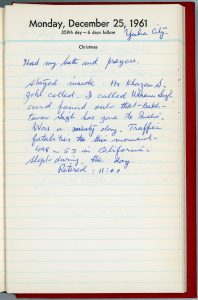 Monday, December 25, 1961
359th day — 6 days follow
Yuba City.
Christmas
Had my bath and prayers.
Stayed inside. Mr Khazan S.
Johl called. I called
and found out that Bakh-
tawar Singh has gone to India.
Was a misty day. Traffic
fatalities to this moment-
498 - 53 in California-
Slept during the day
Retired - 11:00